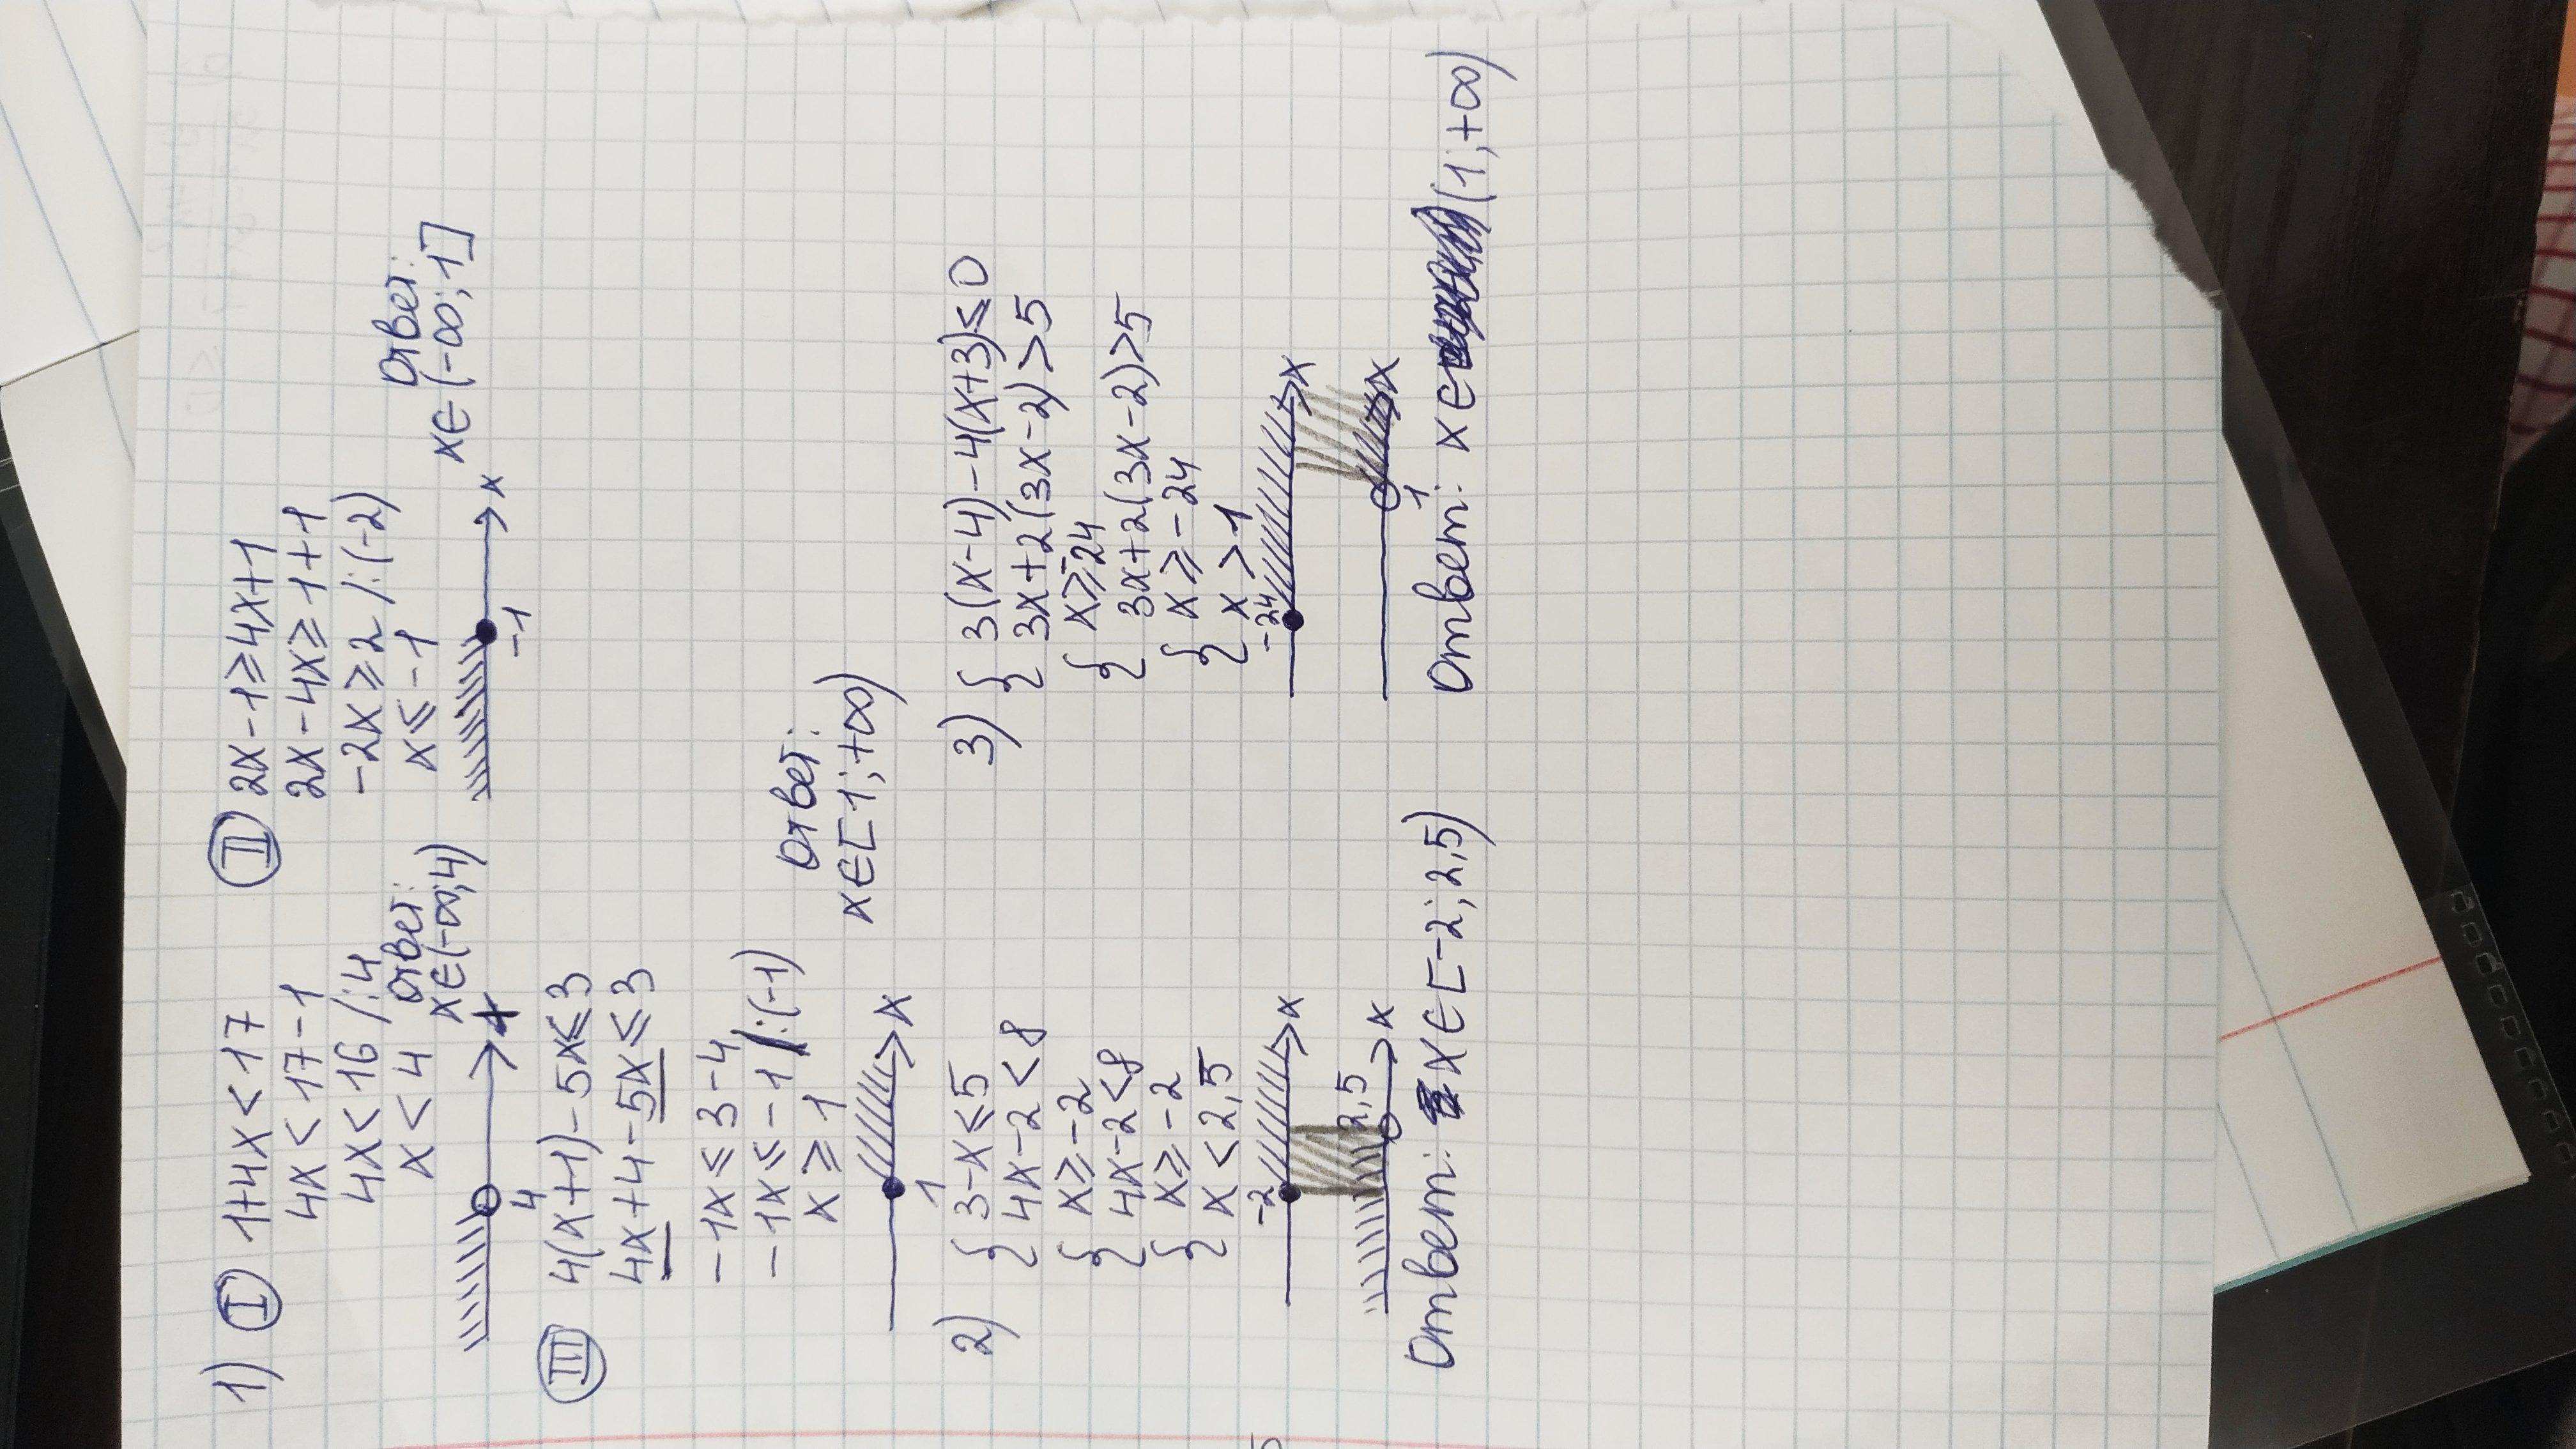 1) I 1+4x<17
4x<17-1
4x<16 /:4
x<4
Ответ:
x∈(-∞;4)
4
x
II 2x-1≥4x+1
2x-4x≥1+1
-2x≥2 /:(-2)
x≤-1
-1
x
Ответ:
x∈(-∞;1]
III 4(x+1)-5x≤3
4x+4-5x≤3
-1x≤3-4
-1x≤-1 /:(-1)
x≥1
1
x
Ответ:
x∈[-1;+∞)
2) { 3-x≤5
4x-2<8
{ x≥-2
4x-2<8
{ x≥-2
x<2,5
-2
x
2,5
x
Ответ: x∈[-2;2,5)
3) { 3(x-4)-4(x+3)≤0
3x+2(3x-2)>5
{ x≥-24
3x+2(3x-2)>5
{ x≥-24
x>1
-24
x
1
x
Ответ: x∈(1;+∞)